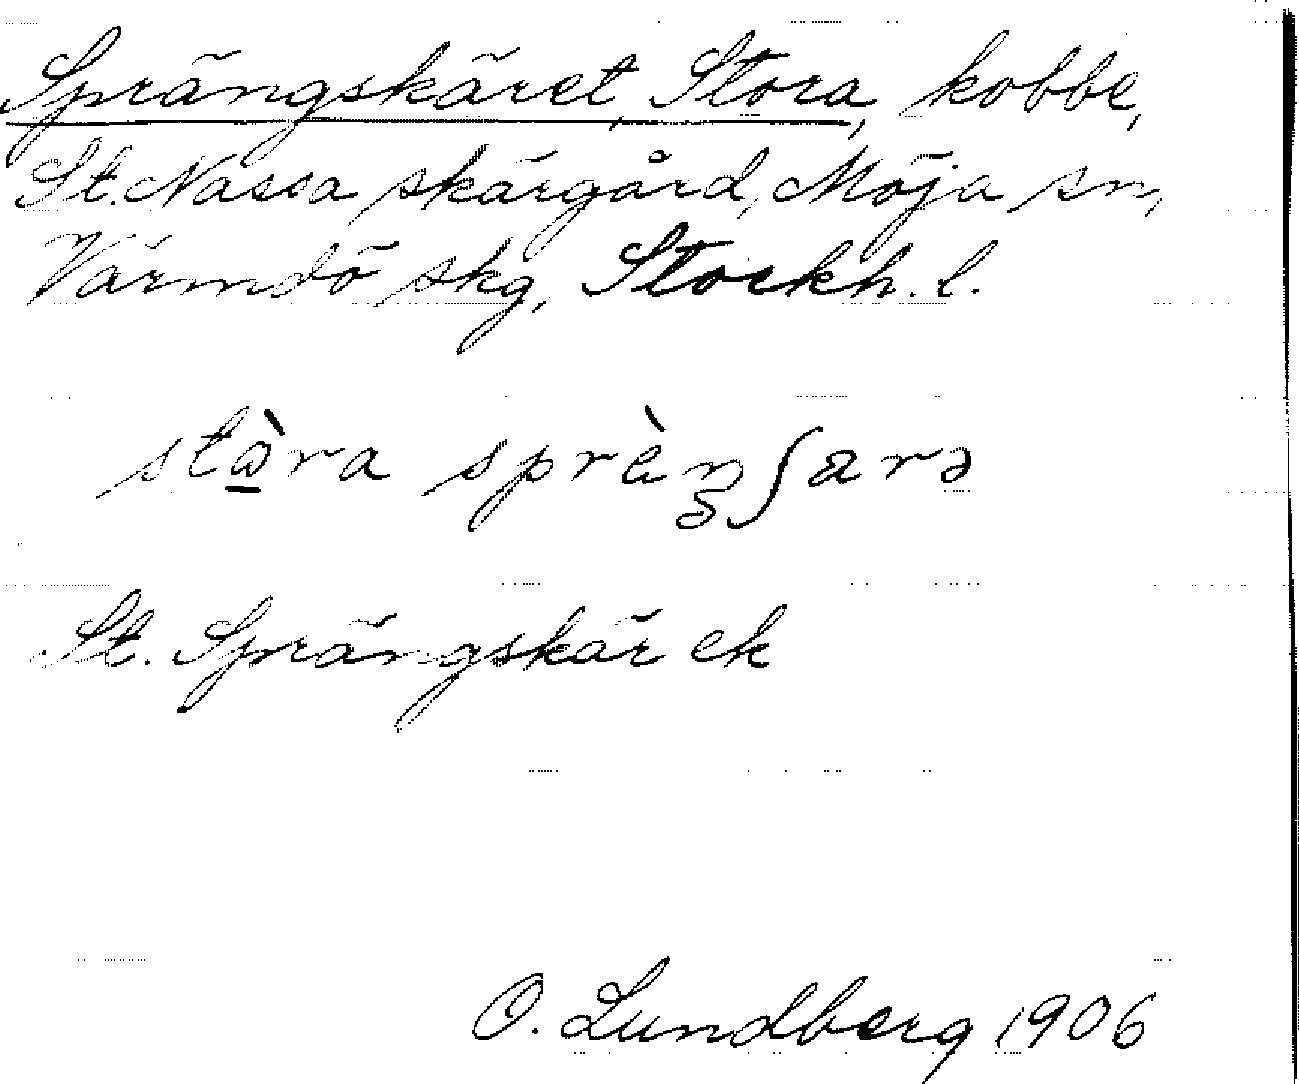 Sprängskäret, Stora, kobbe,
St. Nassa skärgård, Möja sn,
Värmdö skg, Stockh. l.
stò̱ra sprèŋʃærə
St. Sprängskär ek
O. Lundberg 1906